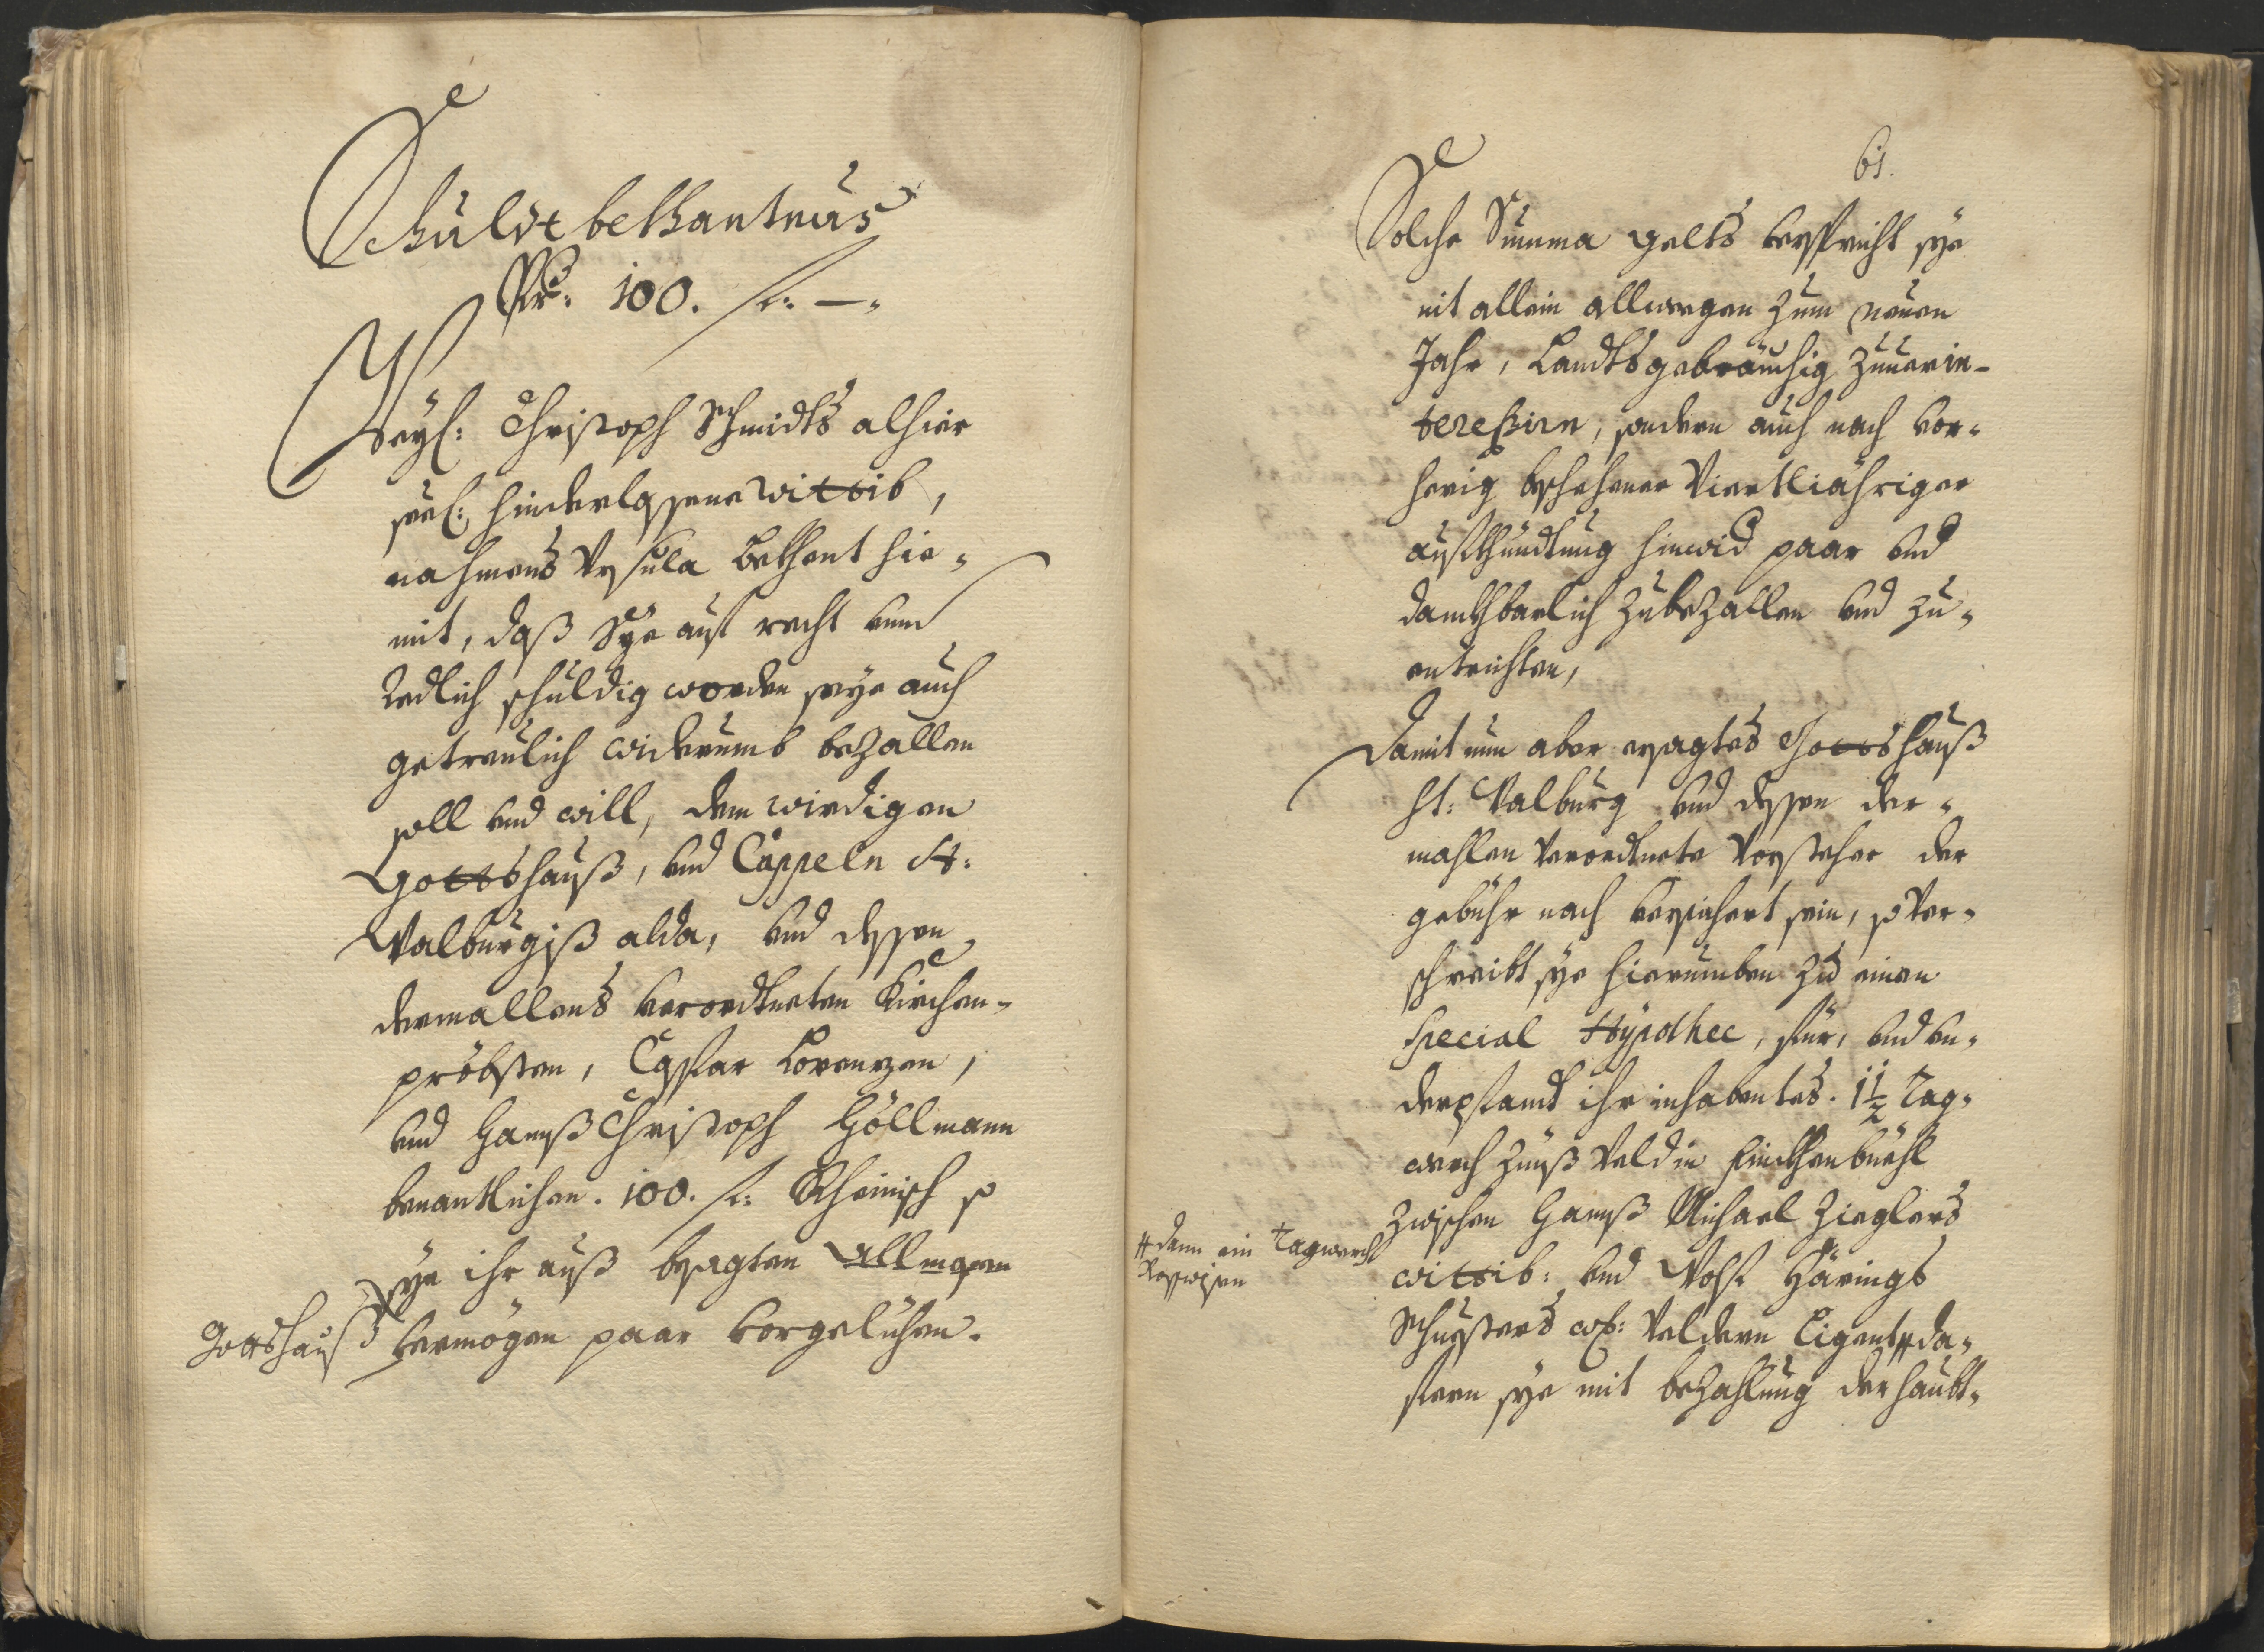 Schuldt bekhantnus
Pr: 100. fl: —.
Weyl: Christoph Schmidts alhier
seel: hinderlassene Wittib,
nahmens Ursula bekhent hie-
mit, daß Sye auf recht vnnd
Redlich schuldig worden seye auch
getreulich widerumb bezallen
soll vnd will, dem wirdigen
Gottshauß, vnd Cappeln St:
Walburgiß alda, vnd dessen
dermallens verordtneten Kirchen-
pröbsten, Caspar Lorenzen,
vnd Hannß Christoph Höllmann
benantlichen. 100. fl: Rheinisch so
sye ihr auß besagten Allmosen
Gottshauß vermögen paar vorgelichen.
61.
Solche Summa gelts verspricht sye
nit allein allwegen zum neuen
Jahr, Landtsgebräuchig zuuerin-
tereßirn, sondern auch nach vor-
herig beschehener Viertliähriger
aufkhündtung hinwid paar vnd
danckhbarlich zubezallen vnd zu-
entrichten,
Damit nun aber ersagtes Gottshauß
St: Walburg vnd dessen der-
mahlen verordtnete Vorsteher der
gebühr nach versichert sein, so ver-
schreibt sye hierumben zu einen
special Hypothec, für, vnd vn-
derpfandt ihr inhabentes. 1 1/2 Tag-
werch Zinß Veld in Finckhenbüehl
zwischen Hannß Michael Zieglers
wittib: vnd Wolf Härings
Schusters Veldern Ligent # da-
# dann ein Tagwerch
fern sye mit bezahlung der haubt-